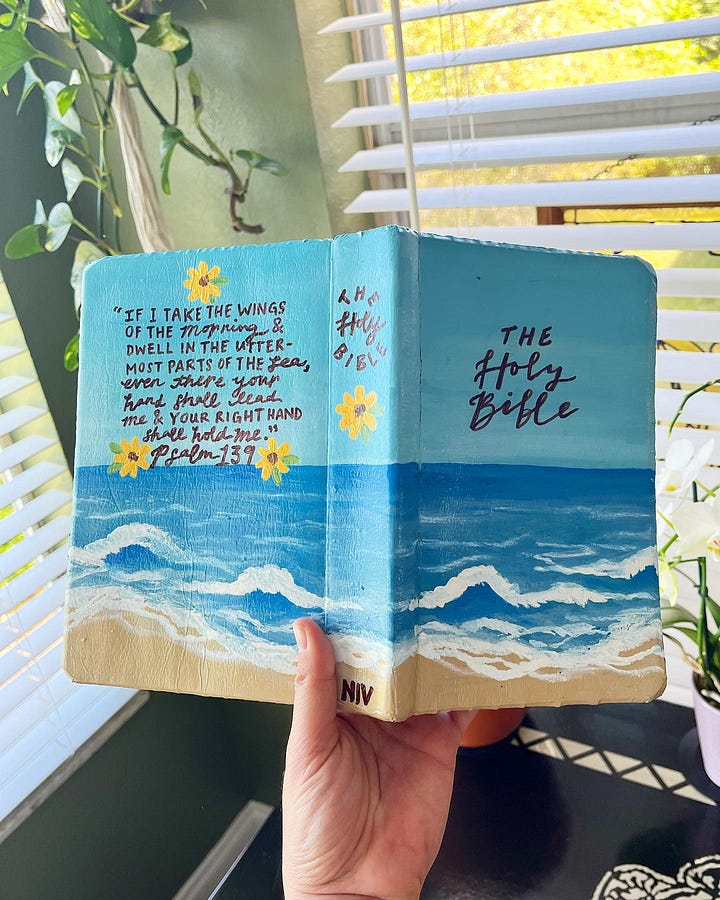 "IF I TAKE THE WINGS
OF THE Morning &
DWELL IN THE UTTER-
MOST PARTS OF THE Sea,
even there your
hand shall lead
me & YOUR RIGHT HAND
shall hold me."
Psalm 139
THE
Holy
BIBLE
NIV
THE
Holy
Bible